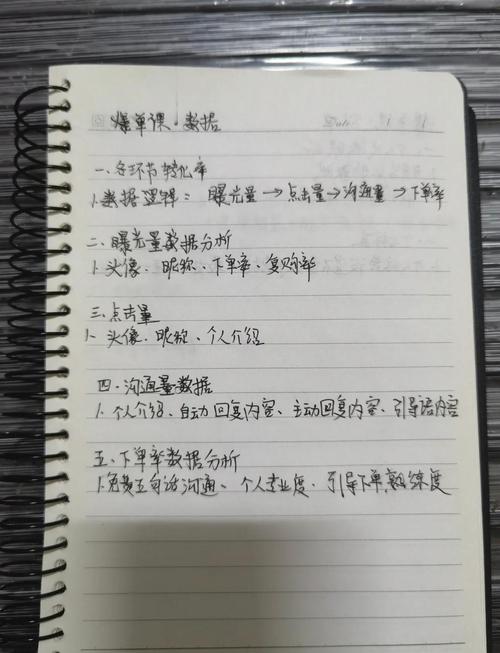 爆单课·数据
一、各环节转化率
1.数据逻辑：曝光量→点击量→沟通量→下单率
二、曝光量数据分析
1.头像、昵称、下单率、复购率
三、点击量
1、头像、昵称、个人介绍
四、沟通量数据
1、个人介绍、自动回复内容、主动回复内容、引导语内容
五、下单率数据分析
1.免费五句话沟通、个人专业度、引导下单熟练度